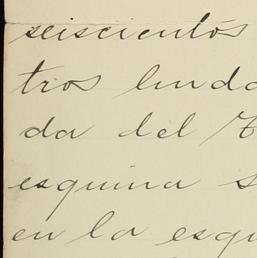 seiscientos
tros linda
da del
esquina s
en la esqu